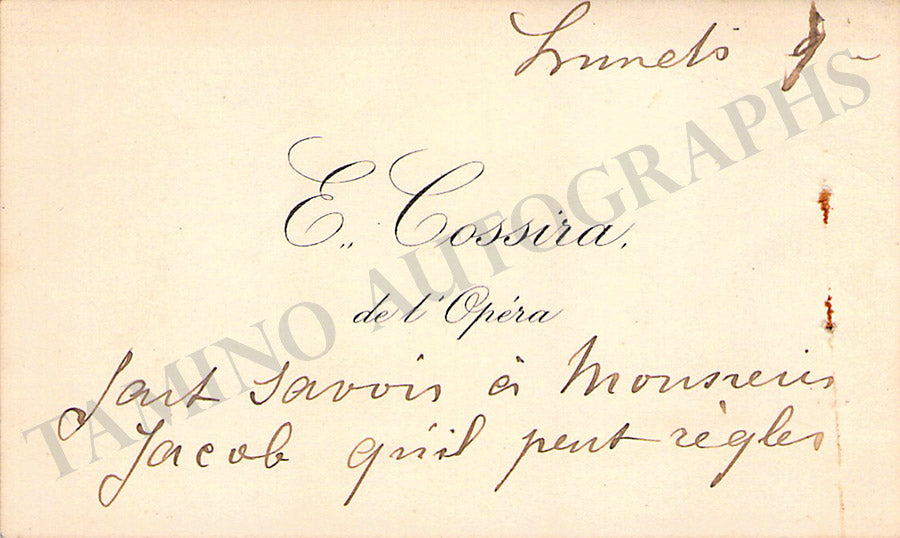 Lundi 9
E. Cossira.
de l'Opéra
fait savoir à Monsieur
Jacob qu'il peut règler
TAMINO AUTOGRAPHS